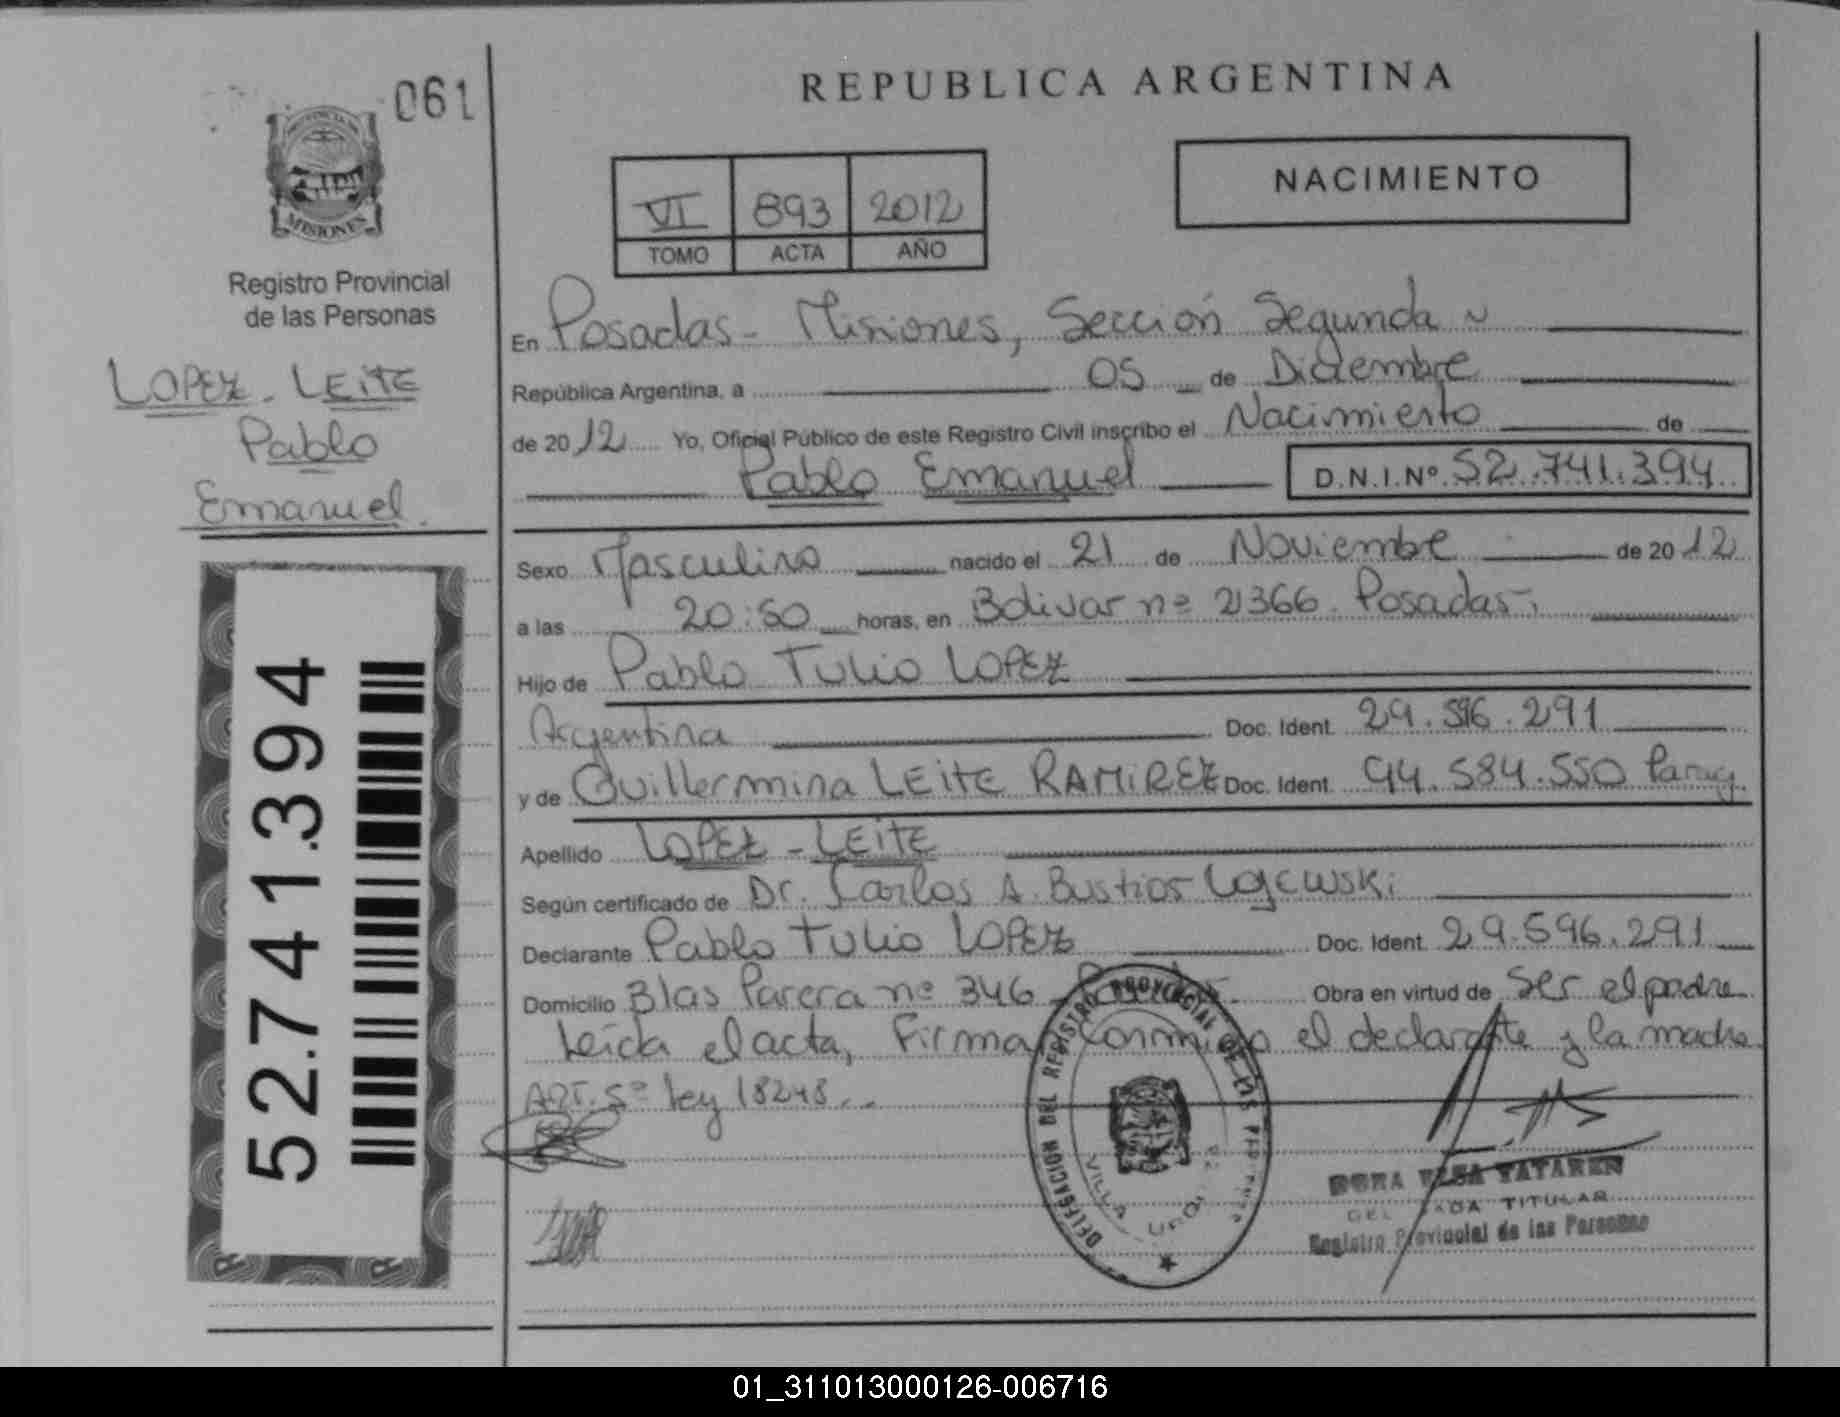 061
PROVINCIA DE
MISIONES
Registro Provincial
de las Personas
LOPEZ - LEITE
Pablo
Emanuel.
52.741.394
REPUBLICA ARGENTINA
NACIMIENTO
VI 893 2012
TOMO ACTA AÑO
En Posadas - Misiones, Sección Segunda
República Argentina, a 05 de Diciembre
de 2012 Yo, Oficial Público de este Registro Civil inscribo el Nacimiento de
Pablo Emanuel D.N.I.Nº 52.741.394
Sexo Masculino nacido el 21 de Noviembre de 2012
a las 20:50 horas, en Bolivar nº 2366 Posadas-
Hijo de Pablo Tulio LOPEZ
Argentina Doc. Ident. 29.596.291
y de Guillermina LEITE RAMIREZ Doc. Ident. 94.584.550 Parag.
Apellido LOPEZ - LEITE
Según certificado de Dr. Carlos A. Bustios
Declarante Pablo Tulio LOPEZ Doc. Ident. 29.596.291
Domicilio Blas Parera nº 346 - Posadas- Obra en virtud de ser el padre
Leída el acta, Firma Conmigo el declarante y la madre.
ART. 5º Ley 18248..
DELEGACION DEL REGISTRO PROVINCIAL DE LAS PERSONAS
VILLA
TITULAR
Registro Provincial de las Personas
01_311013000126-006716